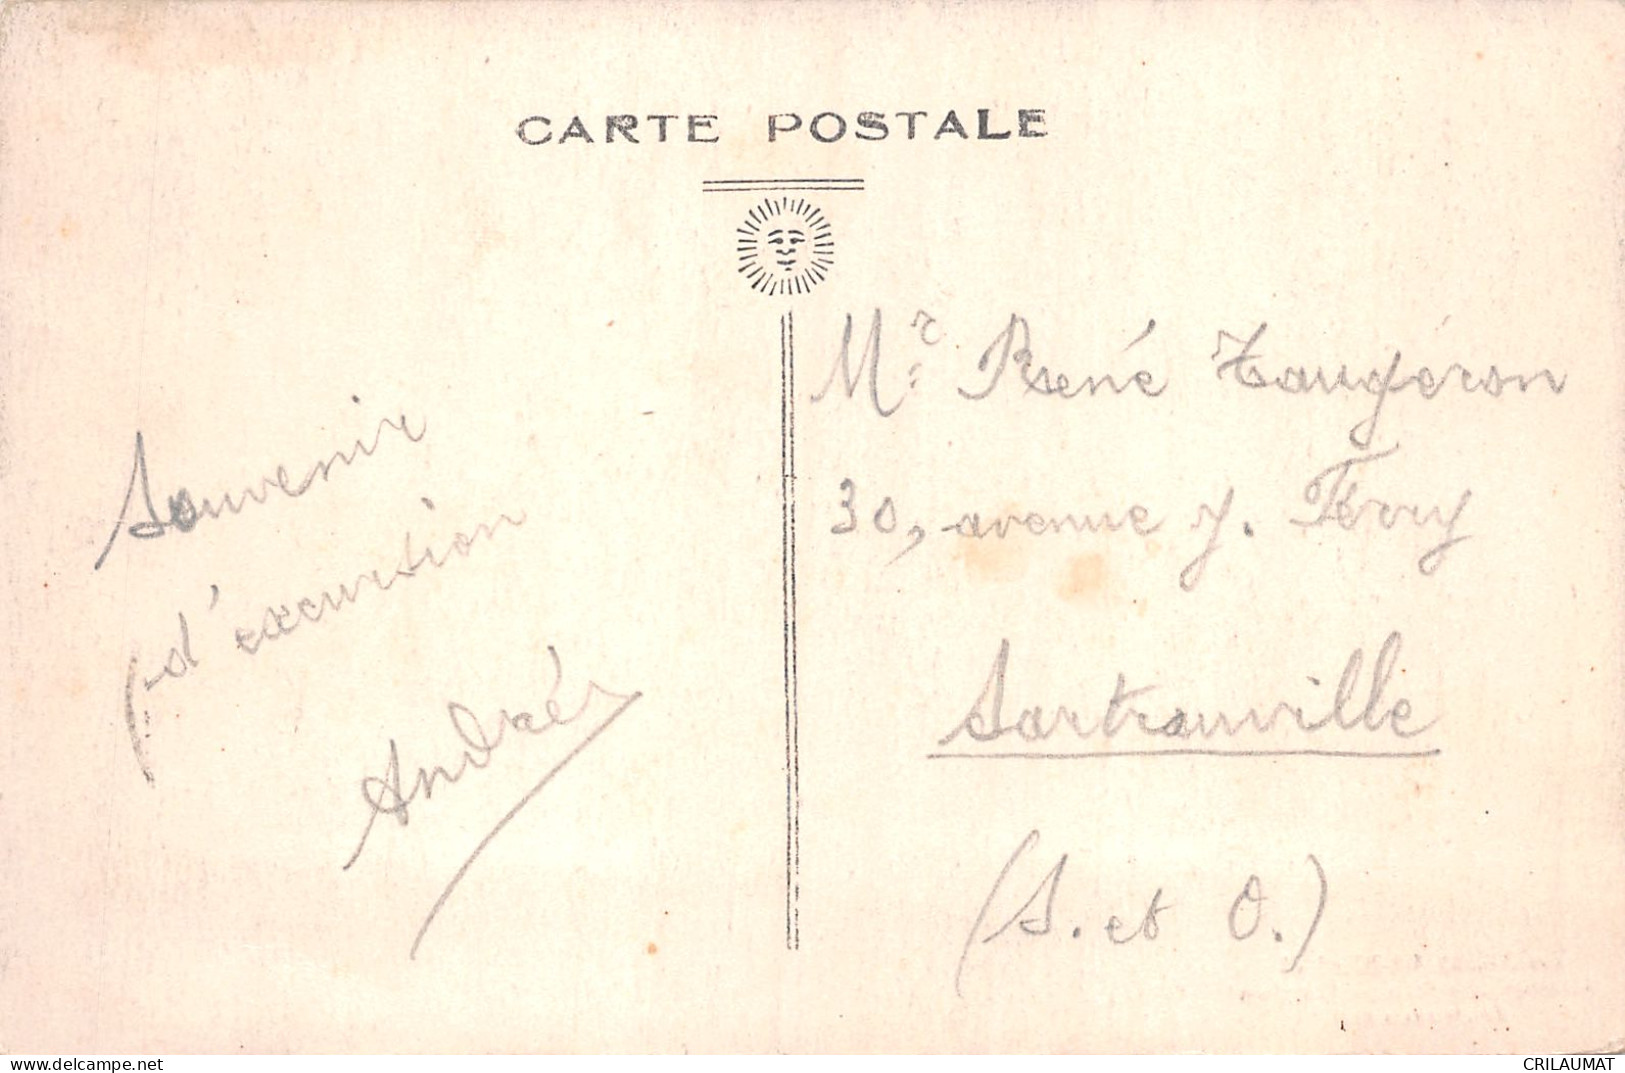 CARTE POSTALE
Souvenir
d'excursion
André
Mr René Taugeron
30, avenue J. Ferry
Sartrouville
(S. et O.)
delcampe.net
CRILAUMAT